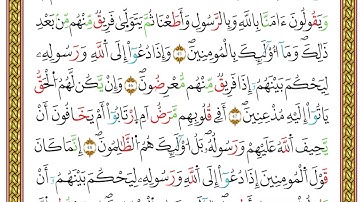 وَيَقُولُونَ ءَامَنَّا بِٱللَّهِ وَبِٱلرَّسُولِ وَأَطَعْنَا ثُمَّ يَتَوَلَّىٰ فَرِيقٌ مِّنْهُم مِّنۢ بَعْدِ
ذَٰلِكَ ۚ وَمَآ أُو۟لَٰٓئِكَ بِٱلْمُؤْمِنِينَ ۝٤٧ وَإِذَا دُعُوٓا۟ إِلَى ٱللَّهِ وَرَسُولِهِۦ
لِيَحْكُمَ بَيْنَهُمْ إِذَا فَرِيقٌ مِّنْهُم مُّعْرِضُونَ ۝٤٨ وَإِن يَكُن لَّهُمُ ٱلْحَقُّ
يَأْتُوٓا۟ إِلَيْهِ مُذْعِنِينَ ۝٤٩ أَفِى قُلُوبِهِم مَّرَضٌ أَمِ ٱرْتَابُوٓا۟ أَمْ يَخَافُونَ أَن
يَحِيفَ ٱللَّهُ عَلَيْهِمْ وَرَسُولُهُۥ ۚ بَلْ أُو۟لَٰٓئِكَ هُمُ ٱلظَّٰلِمُونَ ۝٥٠ إِنَّمَا كَانَ
قَوْلَ ٱلْمُؤْمِنِينَ إِذَا دُعُوٓا۟ إِلَى ٱللَّهِ وَرَسُولِهِۦ لِيَحْكُمَ بَيْنَهُمْ أَن